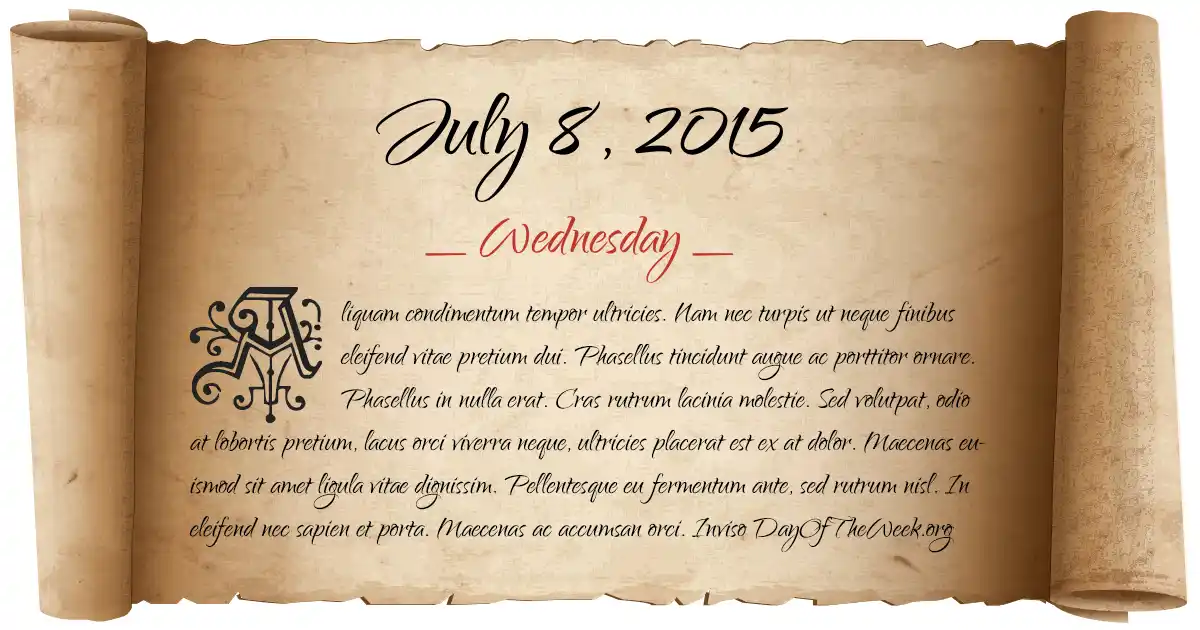 July 8, 2015
__ Wednesday __
Aliquam condimentum tempor ultricies. Nam nec turpis ut neque finibus
eleifend vitae pretium dui. Phasellus tincidunt augue ac porttitor ornare.
Phasellus in nulla erat. Cras rutrum lacinia molestie. Sed volutpat, odio
at lobortis pretium, lacus orci viverra neque, ultricies placerat est ex at dolor. Maecenas eu-
ismod sit amet ligula vitae dignissim. Pellentesque eu fermentum ante, sed rutrum nisl. In
eleifend nec sapien et porta. Maecenas ac accumsan orci. Inviso DayOfTheWeek.org